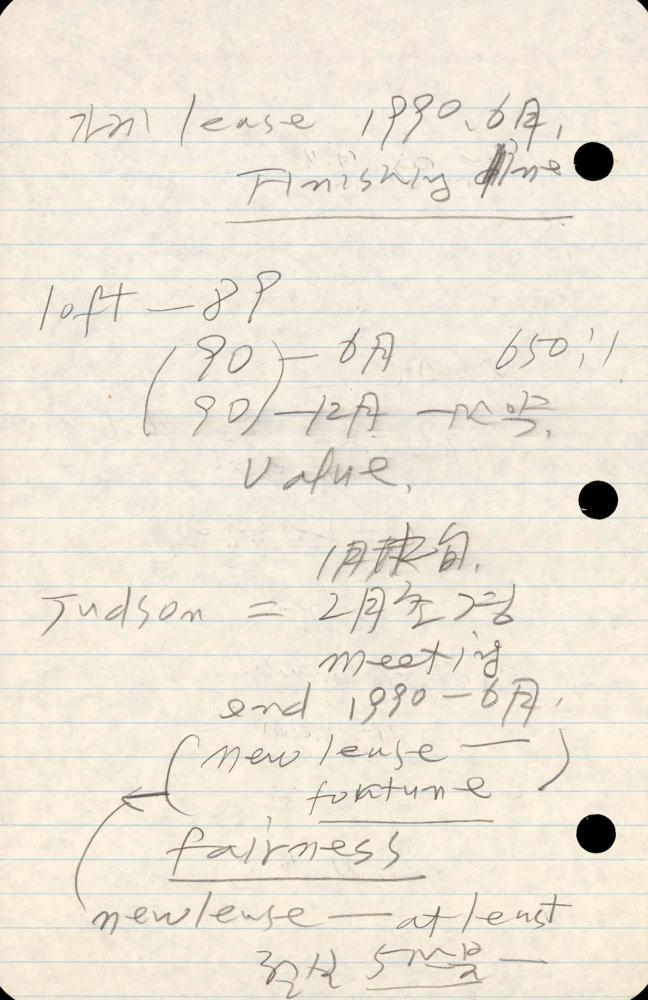 가게 lease 1990. 6月.
Finishing line
loft — 89
(90) — 6月 650
(90) — 12月 —
Value.
1月末旬.
Judson = 2月초 경
meeting
end 1990 — 6月.
(new lease —
fortune)
fairness
new lease — at least
현실 5